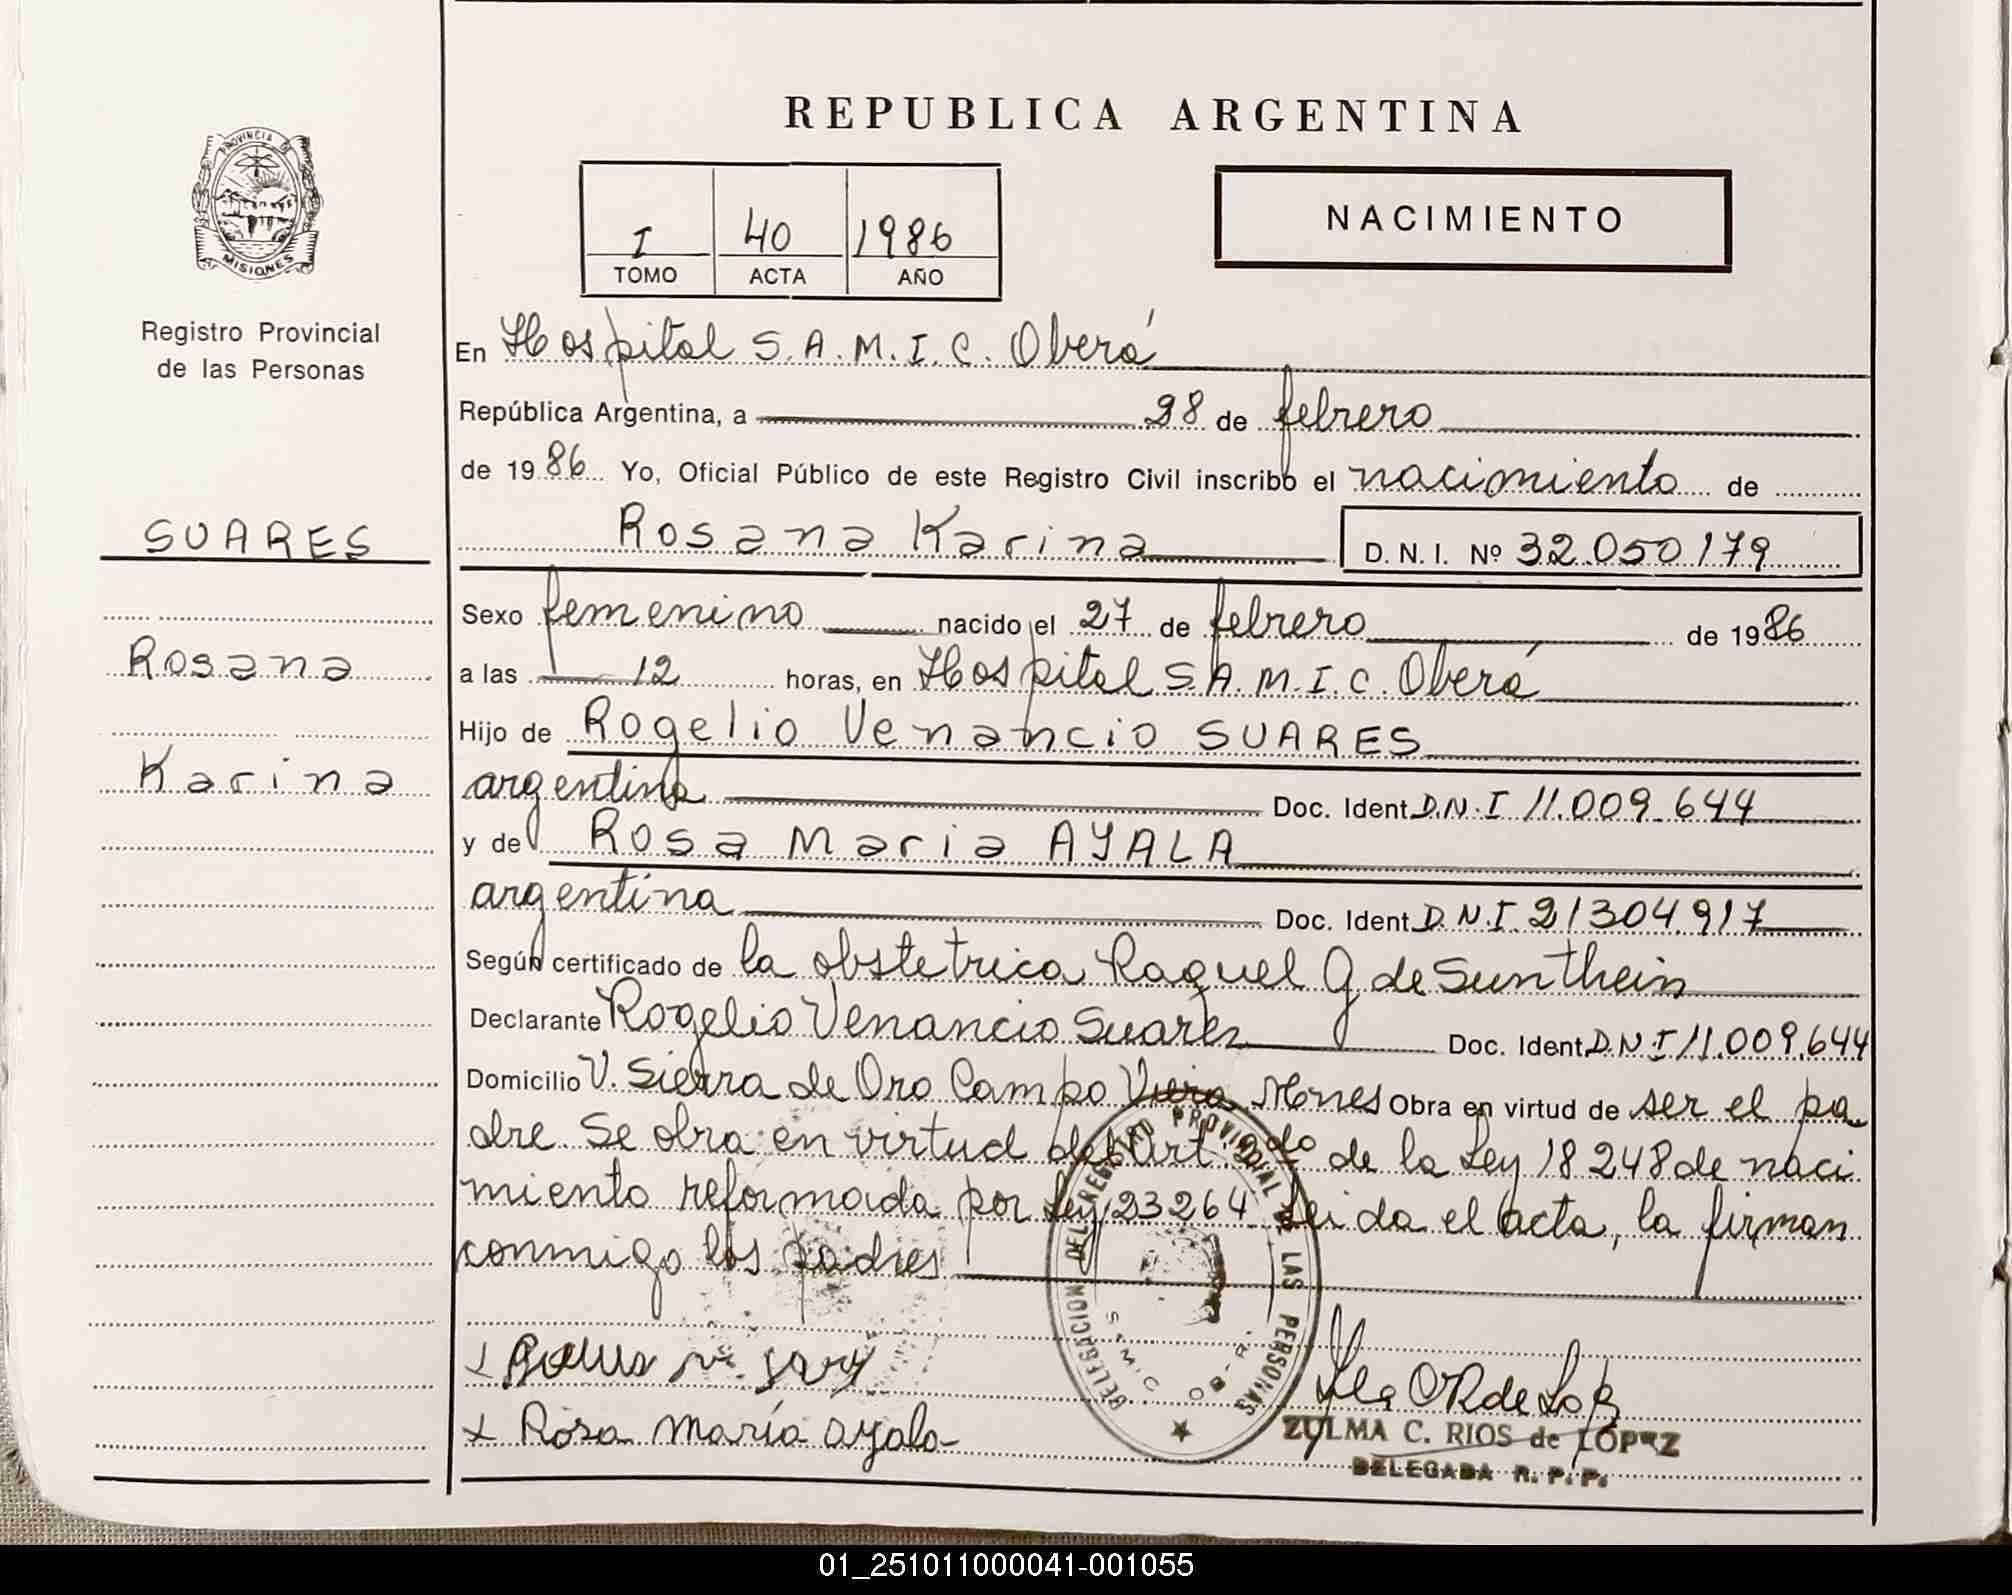 REPUBLICA ARGENTINA
PROVINCIA DE
MISIONES
Registro Provincial
de las Personas
I 40 1986
TOMO ACTA AÑO
NACIMIENTO
En Hospital S.A.M.I.C. Oberá
República Argentina, a 28 de febrero
de 1986 Yo, Oficial Público de este Registro Civil inscribo el nacimiento de
SUARES
Rosana Karina D. N. I. Nº 32.050179
Sexo femenino nacido el 27 de febrero de 1986
Rosana
a las 12 horas, en Hospital S.A.M.I.C. Oberá
Hijo de Rogelio Venancio SUARES
Karina
argentina Doc. Ident. D.N.I 11.009.644
y de Rosa Maria AYALA
argentina Doc. Ident. D.N.I. 21304917
Según certificado de la obstetrica Raquel G de Sunthein
Declarante Rogelio Venancio Suares Doc. Ident. D.N.I 11.009.644
Domicilio V. Sierra de Oro Campo Viera Mnes Obra en virtud de ser el pa
dre. Se obra en virtud del Art. de la Ley 18248 de naci
miento reformada por Ley 23264 Leida el acta, la firman
conmigo los padres
DELEGACION DEL REGISTRO PROVINCIAL DE LAS PERSONAS
x Rosa María Ayala
ZULMA C. RIOS de LOPEZ
DELEGADA R. P. P.
01_251011000041-001055